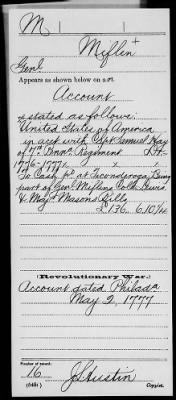 M
Mifflin +
Genl.
Appears as shown below on a
Account
is stated as follows:
United States of America
in acct with Capt Samuel Hay
of 7th Penna. Regiment
1776-1777
To Cash pd at Ticonderoga Being
part of Genl Mifflins Colo
& Majr Masons Bills
£136. 6. 10 1/2
(Revolutionary War.)
Account dated Philada
May 2, 1777
Number of record:
16
Copyist.